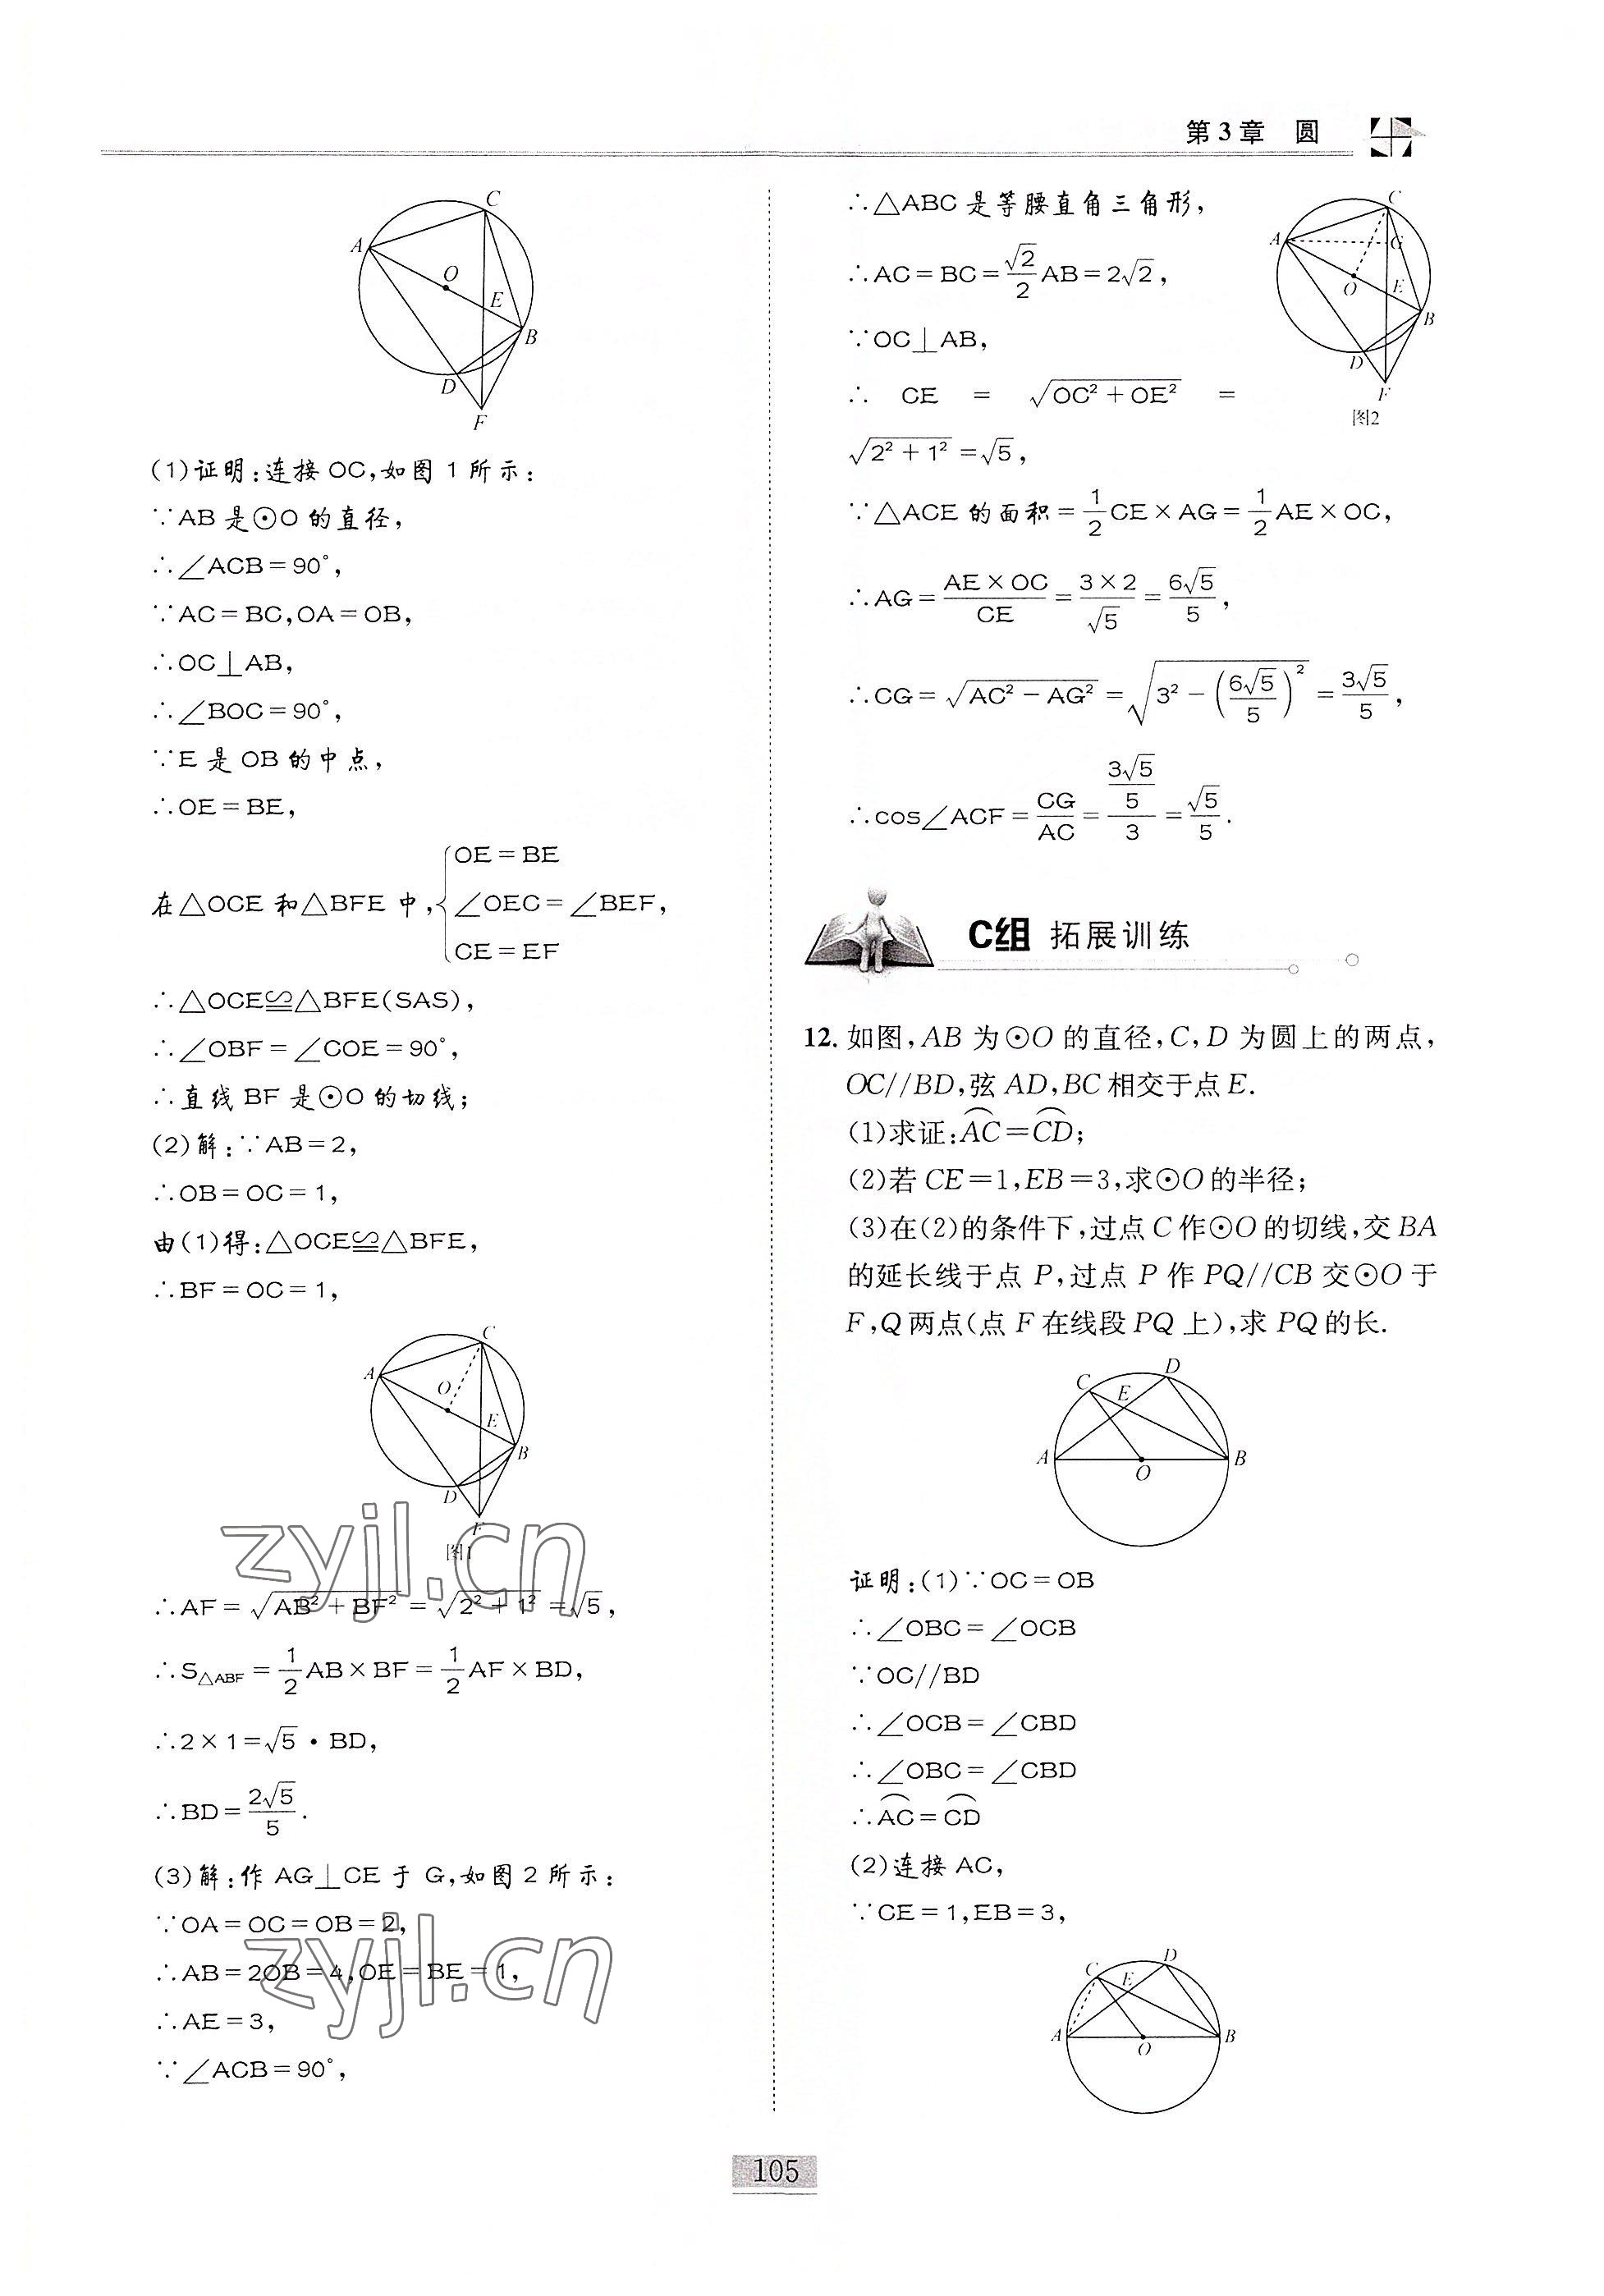 第3章 圆
C
A
O
E
B
D
F
(1)证明:连接 OC,如图 1 所示:
∵AB 是⊙O 的直径,
∴∠ACB=90°,
∵AC=BC,OA=OB,
∴OC⊥AB,
∴∠BOC=90°,
∵E 是 OB 的中点,
∴OE=BE,
在△OCE 和△BFE 中,{OE=BE
∠OEC=∠BEF,
CE=EF
∴△OCE≌△BFE(SAS),
∴∠OBF=∠COE=90°,
∴直线 BF 是⊙O 的切线;
(2)解:∵AB=2,
∴OB=OC=1,
由(1)得:△OCE≌△BFE,
∴BF=OC=1,
C
A
O
E
B
D
F
图1
∴AF=√(AB²+BF²)=√(2²+1²)=√5,
∴S△ABF=1/2AB×BF=1/2AF×BD,
∴2×1=√5·BD,
∴BD=2√5/5.
(3)解:作 AG⊥CE 于 G,如图 2 所示:
∵OA=OC=OB=2,
∴AB=2OB=4,OE=BE=1,
∴AE=3,
∵∠ACB=90°,
∴△ABC 是等腰直角三角形,
∴AC=BC=√2/2AB=2√2,
∵OC⊥AB,
∴ CE = √(OC²+OE²) =
√(2²+1²)=√5,
C
A
G
O
E
B
D
F
图2
∵△ACE 的面积=1/2CE×AG=1/2AE×OC,
∴AG=AE×OC/CE=3×2/√5=6√5/5,
∴CG=√(AC²-AG²)=√(3²-(6√5/5)²)=3√5/5,
∴cos∠ACF=CG/AC=(3√5/5)/3=√5/5.
C组 拓展训练
12. 如图,AB 为⊙O 的直径,C,D 为圆上的两点,
OC//BD,弦 AD,BC 相交于点 E.
(1)求证:⌒AC=⌒CD;
(2)若 CE=1,EB=3,求⊙O 的半径;
(3)在(2)的条件下,过点 C 作⊙O 的切线,交 BA
的延长线于点 P,过点 P 作 PQ//CB 交⊙O 于
F,Q 两点(点 F 在线段 PQ 上),求 PQ 的长.
D
C
E
A
O
B
证明:(1)∵OC=OB
∴∠OBC=∠OCB
∵OC//BD
∴∠OCB=∠CBD
∴∠OBC=∠CBD
∴⌒AC=⌒CD
(2)连接 AC,
∵CE=1,EB=3,
D
C
E
A
O
B
zyjl.cn
zyjl.cn
105